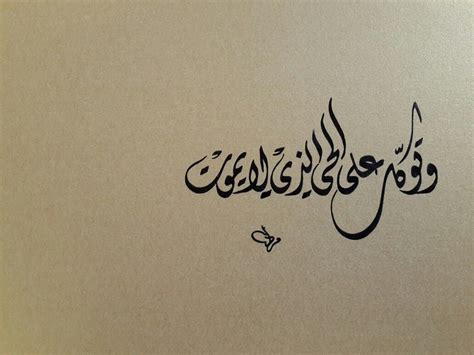 وتوكل على الحي الذي لا يموت